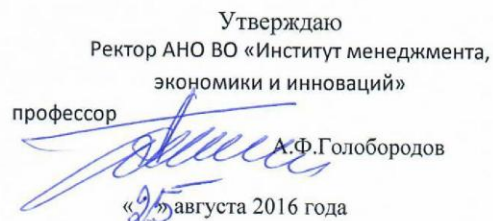 Утверждаю
Ректор АНО ВО «Институт менеджмента,
экономики и инноваций»
профессор
А.Ф.Голобородов
«25» августа 2016 года